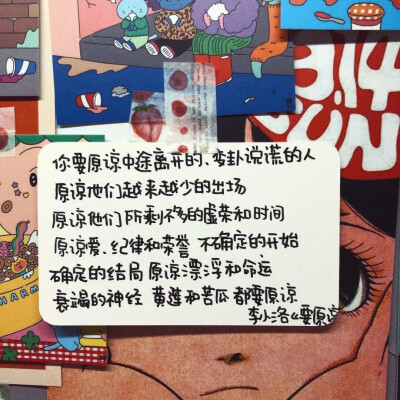 3.14
SUN
你要原谅中途离开的、变卦说谎的人
原谅他们越来越少的出场
原谅他们所剩不多的虚荣和时间
原谅爱、纪律和荣誉 不确定的开始
确定的结局 原谅漂浮和命运
衰竭的神经 黄莲和苦瓜 都要原谅
李小洛《要原谅
HARM